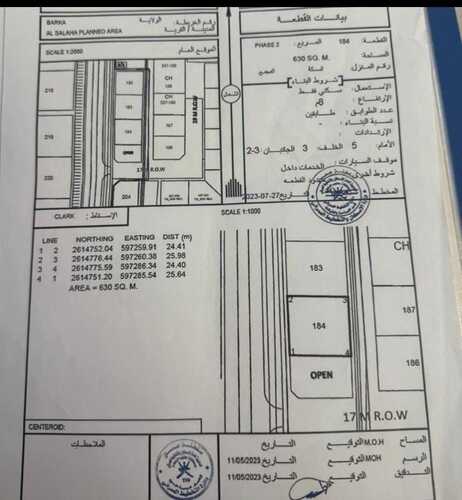 بيانات القطعـة
القطعة: 184 المربع: PHASE 2
المساحة 630 SQ. M.
رقم المنزل:
شروط البناء
الإستعمال: سكني فقط
الإرتفاع: 8م
عدد الطوابق: طابقين
نسبة البناء: -
الإرتدادات:
الأمام: 5 الخلف: 3 الجانبان: 3-2
موقف السيارات: الخدمات داخل
شروط أخرى القطعه
المخطط التاريخ 2023-07-27
BARKA الولاية
AL SALAHA PLANNED AREA المدينة / القرية
SCALE 1:2000 الموقع العام
218
219
220
183
184
OPEN
204
CH
187
186
28 M R.O.W
17 M R.O.W
الشمال
CLARK الإسقاط:
SCALE 1:1000
LINE NORTHING EASTING DIST (m)
1 2 2614752.04 597259.91 24.41
2 3 2614776.44 597260.38 25.98
3 4 2614775.59 597286.34 24.40
4 1 2614751.20 597285.54 25.64
AREA = 630 SQ. M.
183
CH
2 3
184
1 4
187
186
OPEN
17 M R.O.W
CENTEROID:
الملاحظات
المساح M.O.H التوقيع التاريخ
الرسم MOH التوقيع التاريخ 11/05/2023
التدقيق التوقيع التاريخ 11/05/2023